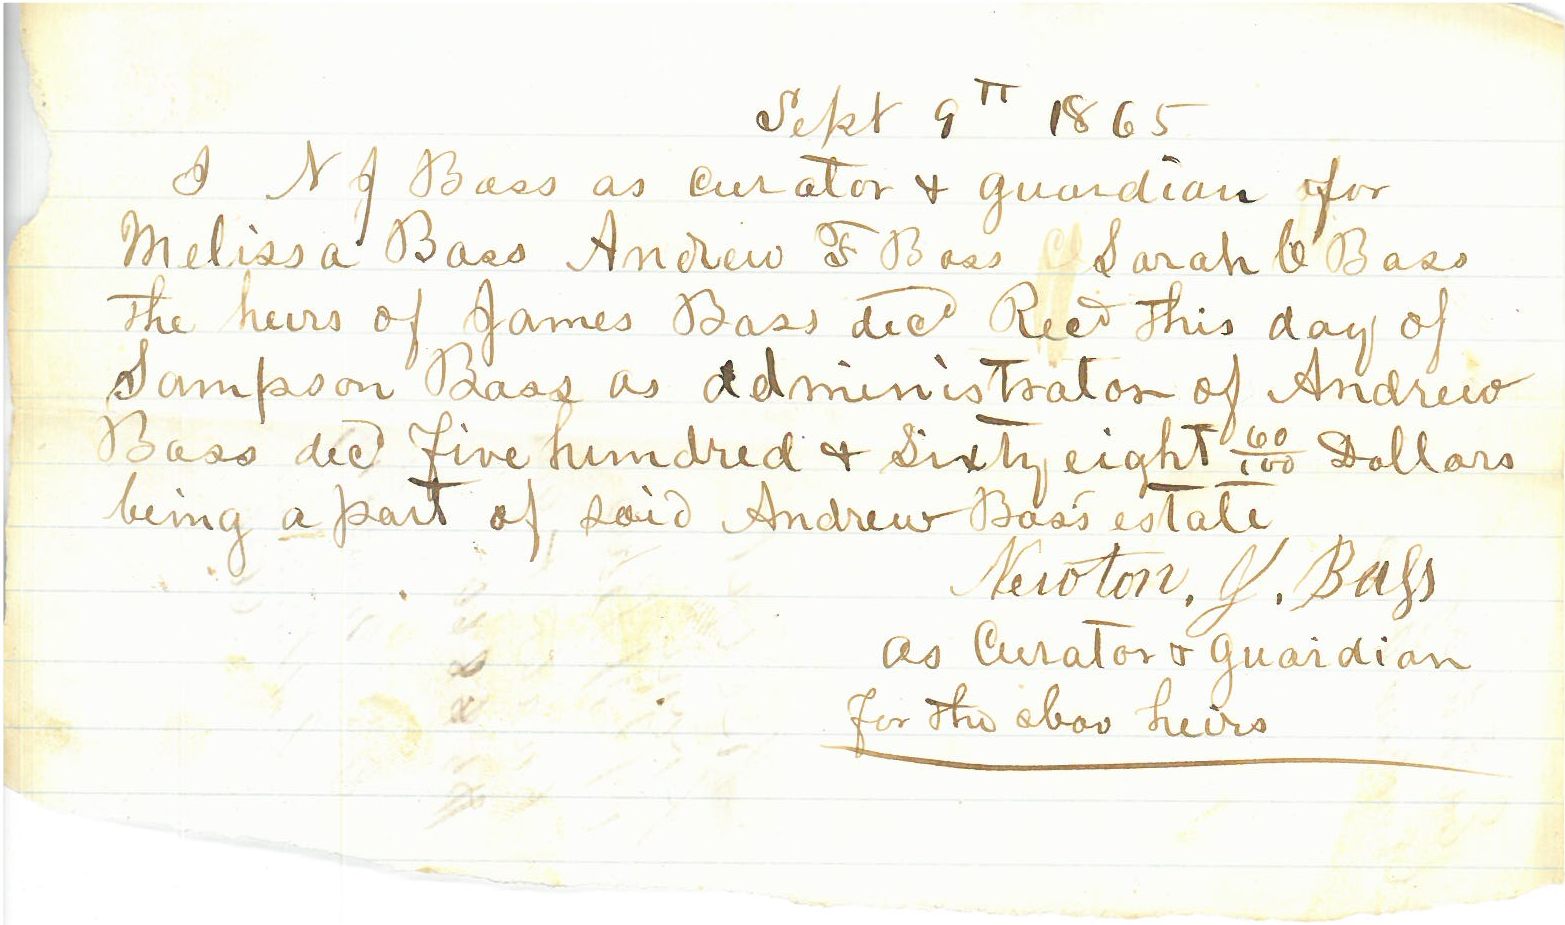 Sept 9th 1865
I N J Bass as curator & guardian for
Melissa Bass Andrew F Bass Sarah C Bass
the heirs of James Bass decd Recd this day of
Sampson Bass as administrator of Andrew
Bass decd five hundred & Sixty eight 60/100 Dollars
being a part of said Andrew Bass estate
Newton. J. Bass
as Curator & guardian
for the abov heirs